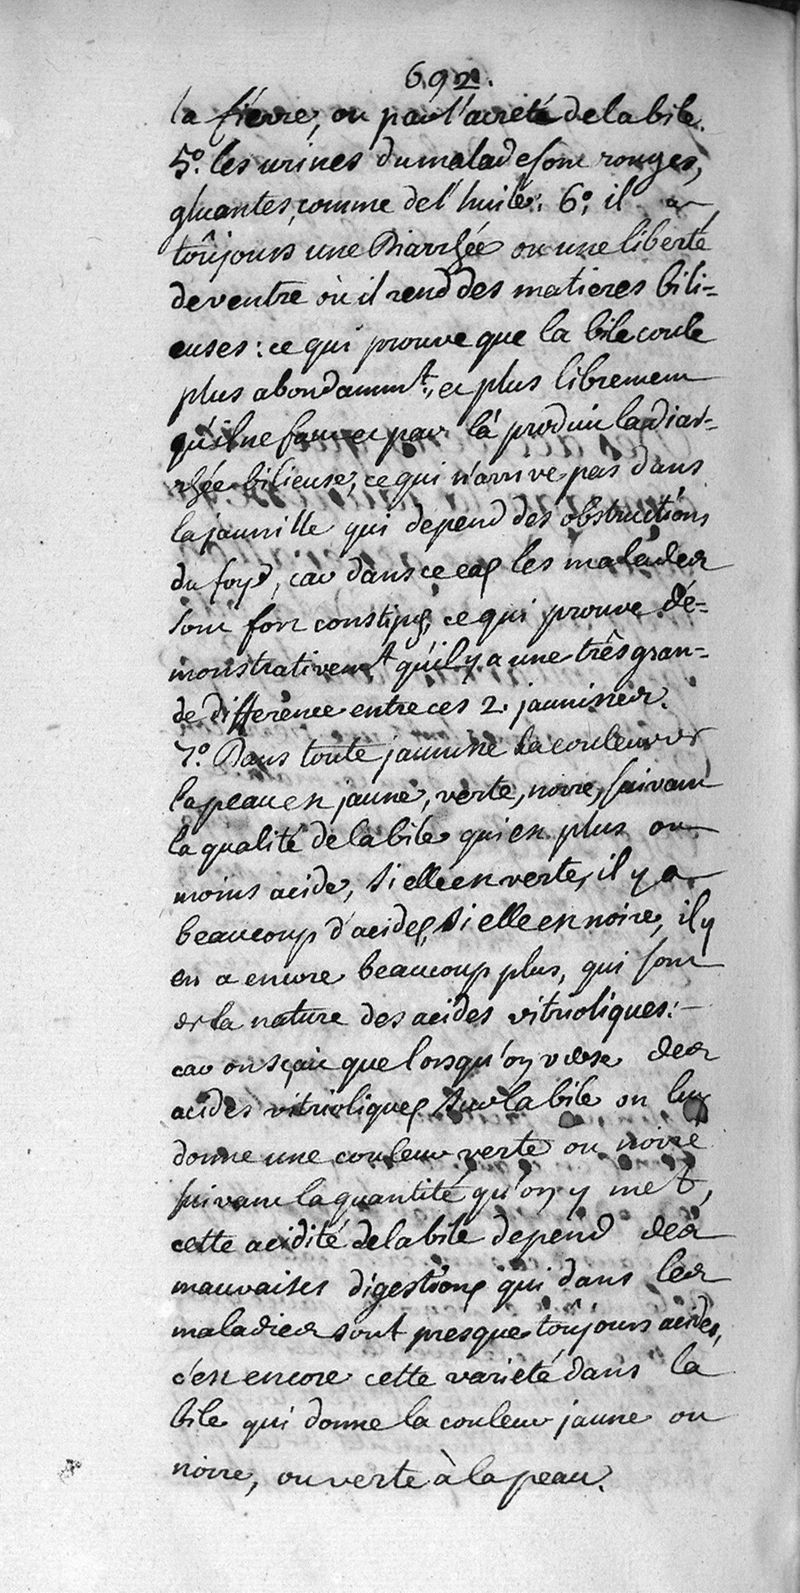 692.
la fiévre, ou par l'acreté de la bile.
5.° les urines du malade sont rouges,
gluantes, comme de l'huile. 6.° il a
toûjours une Diarrhée ou une liberté
de ventre où il rend des matieres bili=
euses: ce qui prouve que la bile coule
plus abondamm.t, et plus librement
qu'il ne faut et par là produit la diar=
rhée bilieuse, ce qui n'arrive pas dans
la jaunisse qui depend des obstructions
du foye, car dans ce cas les malades
sont fort constipés, ce qui prouve dé=
monstrativem.t qu'il y a une très gran=
de différence entre ces 2. jaunisses.
7.° Dans toute jaunisse la couleur de
la peau est jaune, verte, noire, suivant
la qualité de la bile qui est plus ou
moins acide, si elle est verte, il y a
beaucoup d'acides, si elle est noire, il y
en a encore beaucoup plus, qui sont
de la nature des acides vitrioliques: —
car on sçait que lorsqu'on verse des
acides vitrioliques sur la bile on luy
donne une couleur verte ou noire
suivant la quantité qu'on y met,
cette acidité de la bile depend des
mauvaises digestions qui dans les
maladies sont presque toûjours acides,
c'est encore cette varieté dans la
bile qui donne la couleur jaune ou
noire, ou verte à la peau.